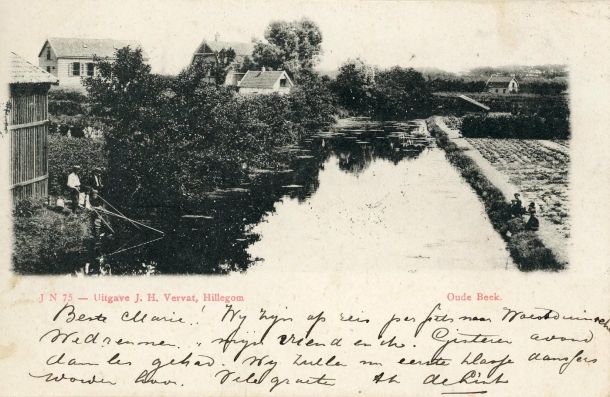 J N 75 — Uitgave J. H. Vervat, Hillegom
Oude Beek.
Beste Marie! Wij zijn op reis per fiets naar Woestduinsche
Wedrennen, mijn vriend en ik. Gisteren avond
dansles gehad. Wij zullen nu eerste klasse dansers
worden hoor. Vele groete